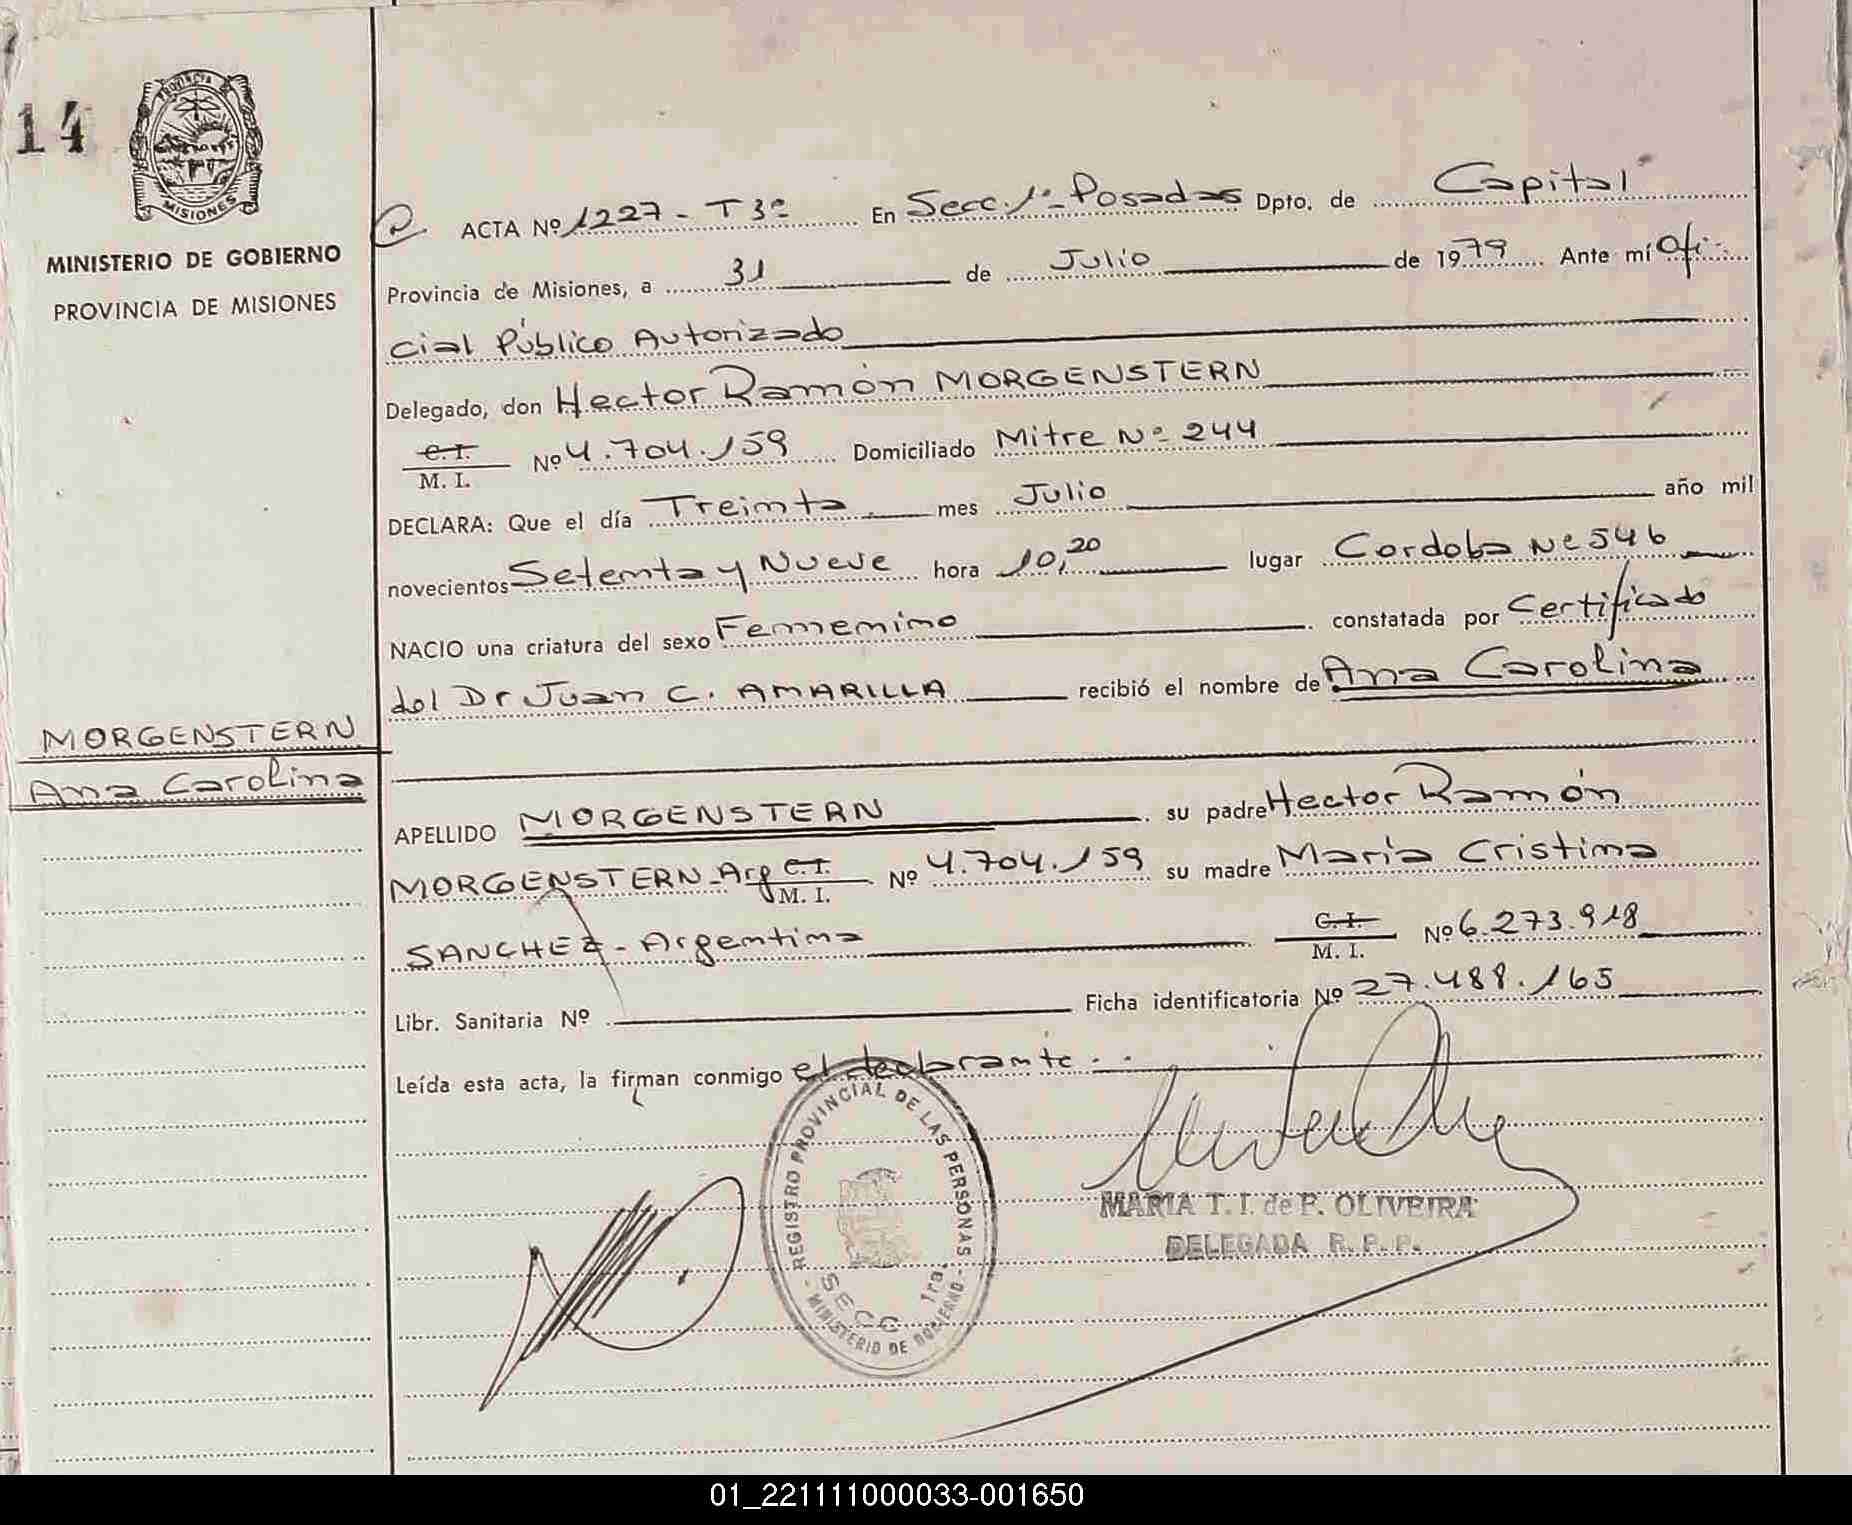 14
PROVINCIA DE
MISIONES
MINISTERIO DE GOBIERNO
PROVINCIA DE MISIONES
ACTA Nº 1227 - T 3º En Secc. 1ª - Posadas Dpto. de Capital
Provincia de Misiones, a 31 de Julio de 1979 Ante mí Ofi-
cial Público Autorizado
Delegado, don Hector Ramón MORGENSTERN
C. I.
M. I. Nº 4.704.159 Domiciliado Mitre Nº 244
DECLARA: Que el día Treinta mes Julio año mil
novecientos Setenta y Nueve hora 10,20 lugar Cordoba Nº 546
NACIO una criatura del sexo Femenino constatada por Certificado
del Dr Juan C. AMARILLA recibió el nombre de Ana Carolina
MORGENSTERN
Ana Carolina
APELLIDO MORGENSTERN su padre Hector Ramón
MORGENSTERN - Arg C. I.
M. I. Nº 4.704.159 su madre María Cristina
SANCHEZ - Argentina C. I.
M. I. Nº 6.273.918
Libr. Sanitaria Nº Ficha identificatoria Nº 27.488.165
Leída esta acta, la firman conmigo el declarante . .
REGISTRO PROVINCIAL DE LAS PERSONAS
SECC 1ra.
- MINISTERIO DE GOBIERNO -
MARIA T. I. de P. OLIVEIRA
DELEGADA R. P. P.
01_221111000033-001650